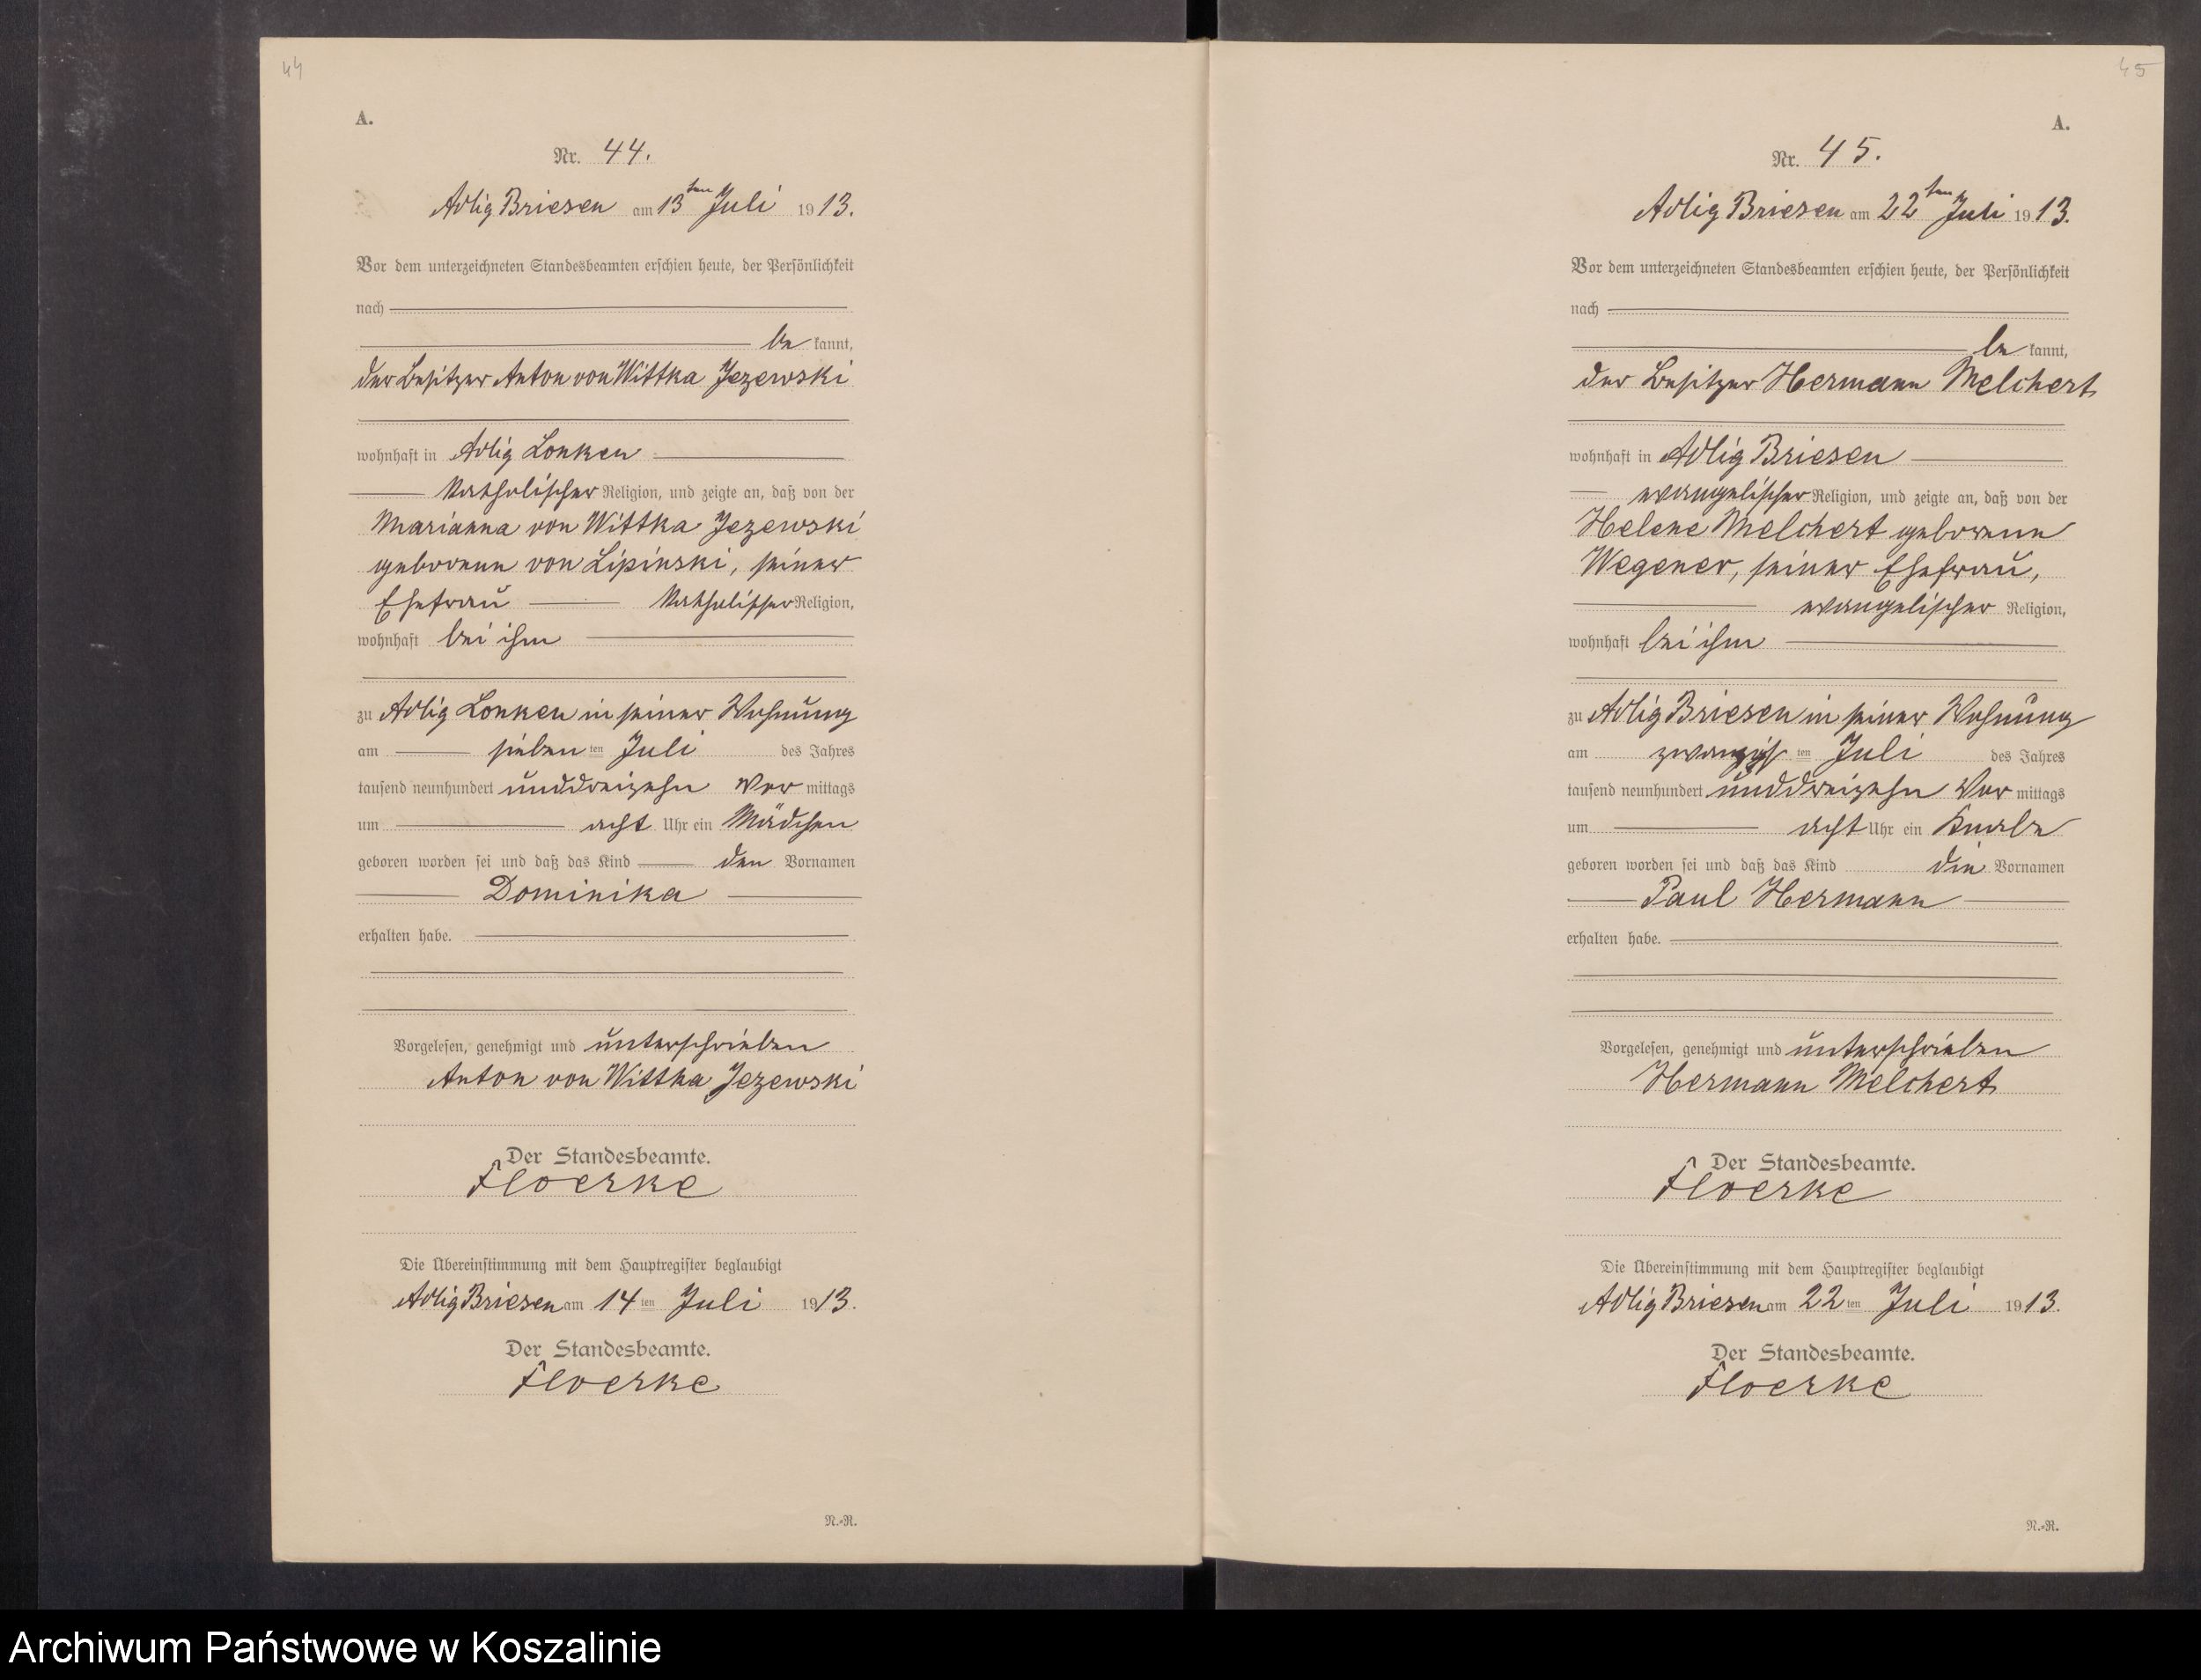 44
A.
Nr. 44.
Adlig Briesen am 13ten Juli 1913.
Vor dem unterzeichneten Standesbeamten erschien heute, der Persönlichkeit
nach
be kannt,
der Besitzer Anton von Wittka Jezewski
wohnhaft in Adlig Lonken
katholischer Religion, und zeigte an, daß von der
Marianna von Wittka Jezewski
geborenen von Lipinski, seiner
Ehefrau katholischer Religion,
wohnhaft bei ihm
zu Adlig Lonken in seiner Wohnung
am sieben ten Juli des Jahres
tausend neunhundert unddreizehn Vor mittags
um acht Uhr ein Mädchen
geboren worden sei und daß das Kind den Vornamen
Dominika
erhalten habe.
Vorgelesen, genehmigt und unterschrieben
Anton von Wittka Jezewski
Der Standesbeamte.
Floerke
Die Übereinstimmung mit dem Hauptregister beglaubigt
Adlig Briesen am 14 ten Juli 1913.
Der Standesbeamte.
Floerke
N.-R.
45
A.
Nr. 45.
Adlig Briesen am 22ten Juli 1913.
Vor dem unterzeichneten Standesbeamten erschien heute, der Persönlichkeit
nach
be kannt,
der Besitzer Hermann Melchert
wohnhaft in Adlig Briesen
evangelischer Religion, und zeigte an, daß von der
Helene Melchert geborenen
Wegener, seiner Ehefrau,
evangelischer Religion,
wohnhaft bei ihm
zu Adlig Briesen in seiner Wohnung
am zwanzigs ten Juli des Jahres
tausend neunhundert unddreizehn Vor mittags
um acht Uhr ein Knabe
geboren worden sei und daß das Kind die Vornamen
Paul Hermann
erhalten habe.
Vorgelesen, genehmigt und unterschrieben
Hermann Melchert
Der Standesbeamte.
Floerke
Die Übereinstimmung mit dem Hauptregister beglaubigt
Adlig Briesen am 22 ten Juli 1913.
Der Standesbeamte.
Floerke
N.-R.
Archiwum Państwowe w Koszalinie